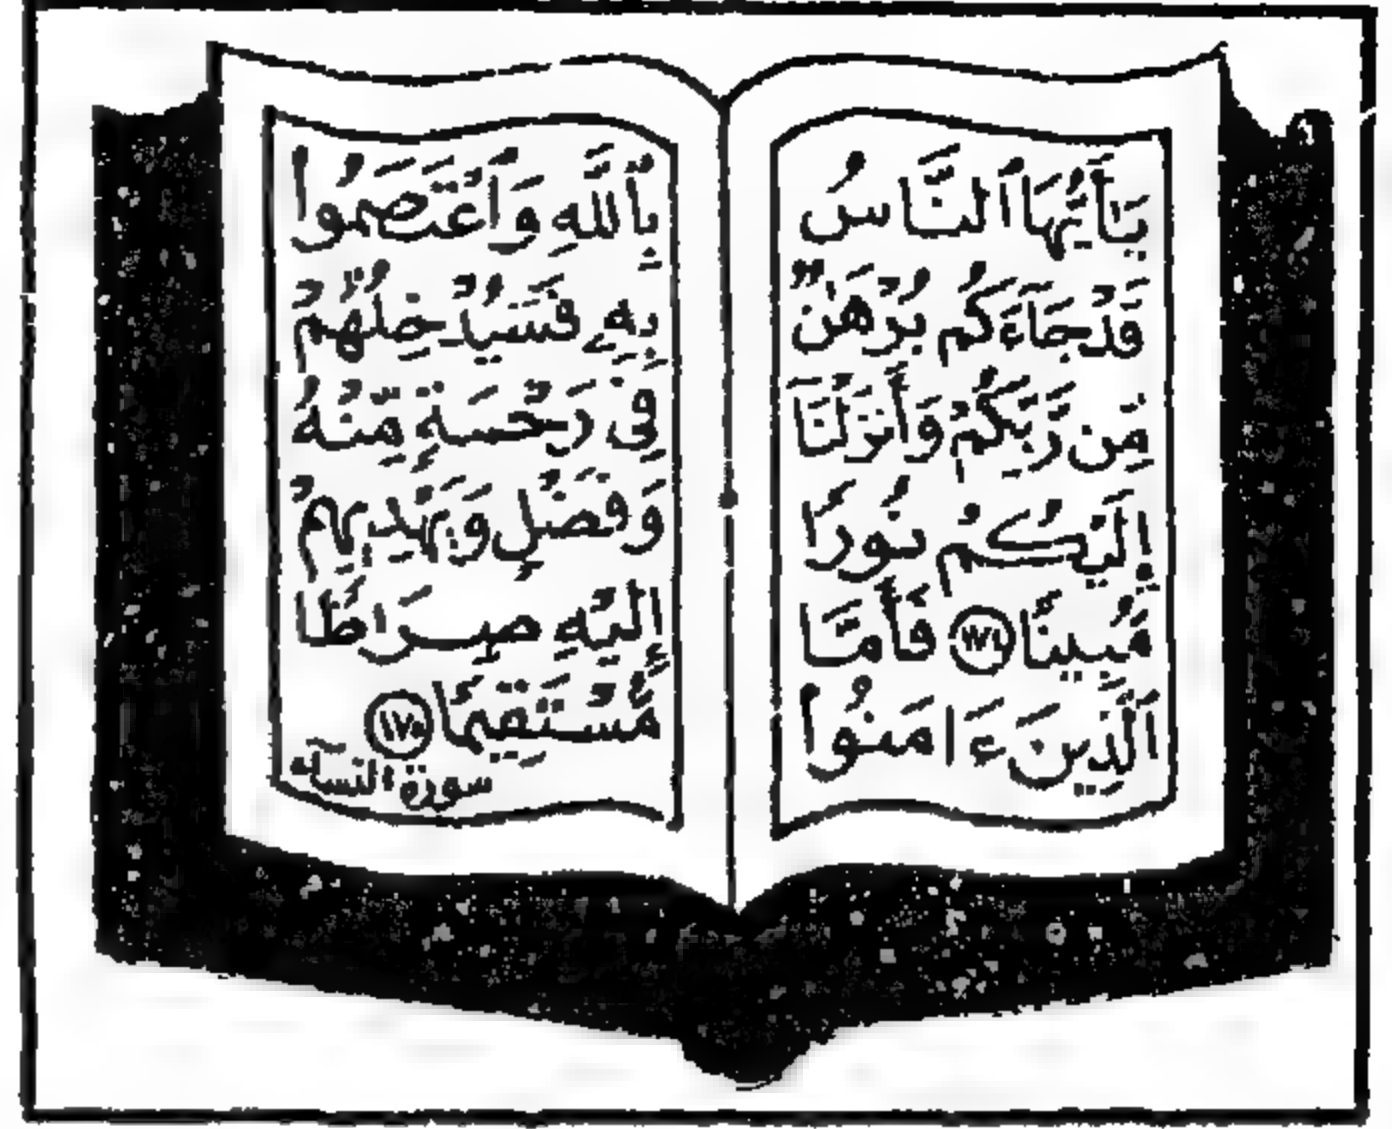 يَٰٓأَيُّهَا ٱلنَّاسُ
قَدْ جَآءَكُم بُرْهَٰنٌ
مِّن رَّبِّكُمْ وَأَنزَلْنَآ
إِلَيْكُمْ نُورًا
مُّبِينًا ١٧٤ فَأَمَّا
ٱلَّذِينَ ءَامَنُوا
بِٱللَّهِ وَٱعْتَصَمُوا
بِهِۦ فَسَيُدْخِلُهُمْ
فِى رَحْمَةٍ مِّنْهُ
وَفَضْلٍ وَيَهْدِيهِمْ
إِلَيْهِ صِرَٰطًا
مُّسْتَقِيمًا ١٧٥
سورة النساء